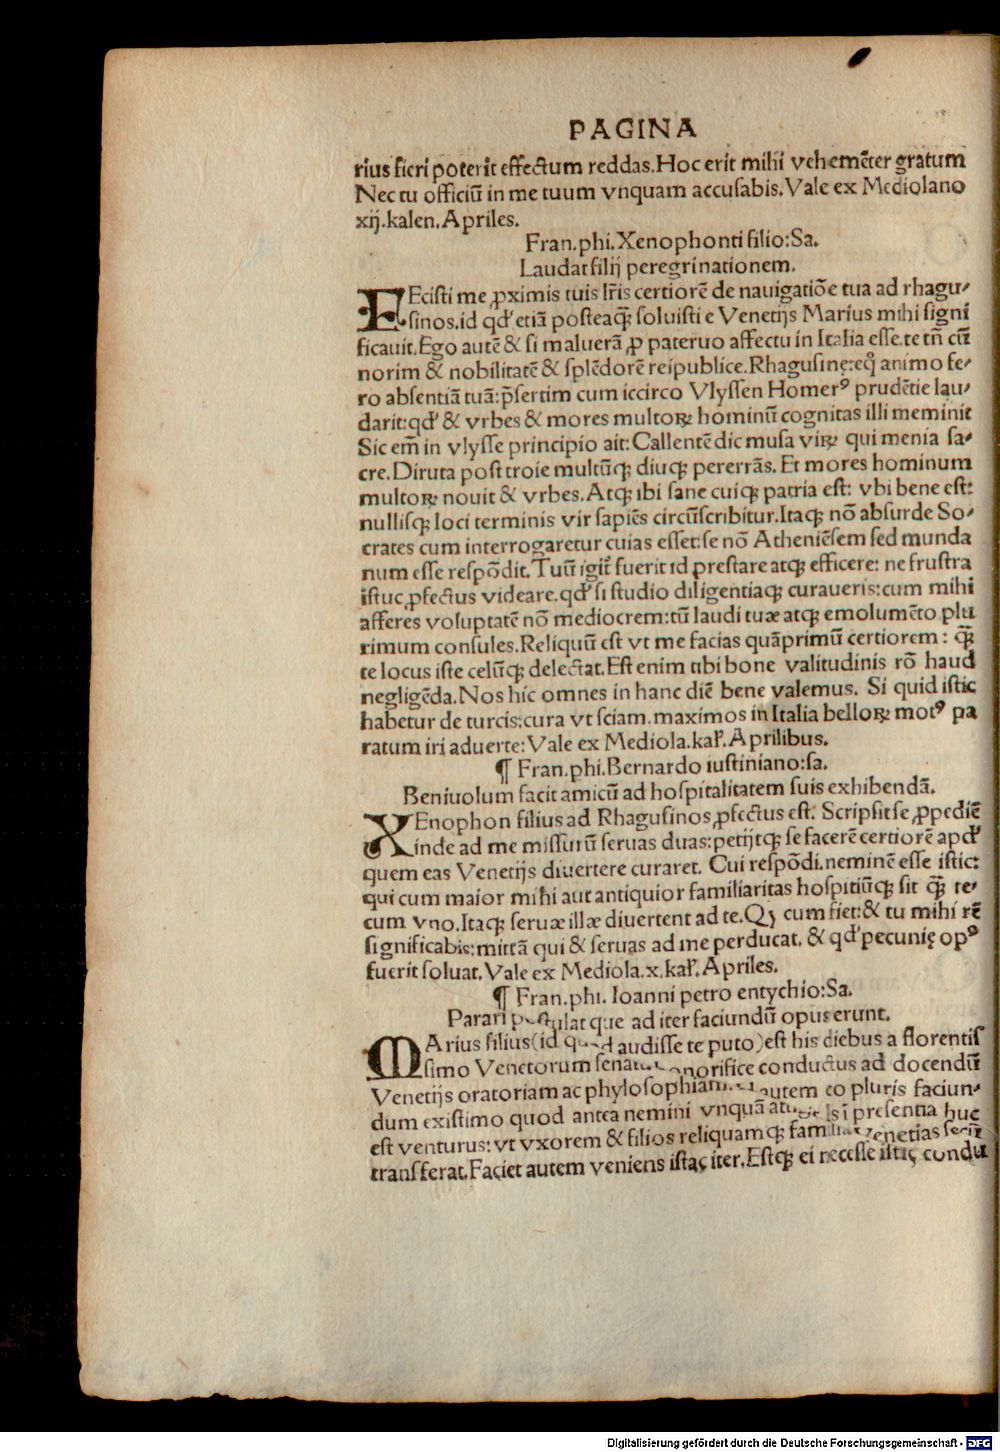 PAGINA
rius fieri poterit effectum reddas.Hoc erit mihi vehemēter gratum
Nec tu officiū in me tuum vnquam accusabis.Vale ex Mediolano
xij.kalen.Apriles.
Fran.phi.Xenophonti filio:Sa.
Laudat filij peregrinationem.
FEcisti me ꝓximis tuis lr̄is certiorē de nauigatiōe tua ad rhagu⸗
sinos.id qđ etiā posteaꝗ̃ soluisti e Venetijs Marius mihi signi
ficauit.Ego autē & si maluerā ꝓ pateruo affectu in Italia esse.te tñ cū
norim & nobilitatē & splēdorē reipublice.Rhagusinę:eq̊ animo fe⸗
ro absentiā tuā:p̄sertim cum iccirco Vlyssen Homerꝰ prudētie lau⸗
darit:qđ & vrbes & mores multoꝝ hominū cognitas illi meminit
Sic em̄ in vlysse principio ait:Callentē dic musa viꝝ qui menia sa⸗
cre.Diruta post troie multūqꝫ diuqꝫ pererrās. Et mores hominum
multoꝝ nouit & vrbes.Atqꝫ ibi sane cuiqꝫ patria est: vbi bene est:
nullisqꝫ loci terminis vir sapiēs circūscribitur.Itaqꝫ nō absurde So⸗
crates cum interrogaretur cuias esset:se nō Atheniēsem sed munda
num esse respōdit.Tuū igit᷑ fuerit id prestare atqꝫ efficere: ne frustra
istuc ꝓfectus videare.qđ si studio diligentiaqꝫ curaueris:cum mihi
afferes voluptatē nō mediocrem:tū laudi tuæ atqꝫ emolumēto plu
rimum consules.Reliquū est vt me facias quāprimū certiorem : ꝗ̃
te locus iste celūqꝫ delectat.Est enim tibi bone valitudinis rō haud
negligēda.Nos hic omnes in hanc diē bene valemus. Si quid istic
habetur de turcis:cura vt sciam.maximos in Italia belloꝝ motꝰ pa
ratum iri aduerte:Vale ex Mediola.kal̓.Aprilibus.
¶ Fran.phi.Bernardo iustiniano:sa.
Beniuolum facit amicū ad hospitalitatem suis exhibendā.
XEnophon filius ad Rhagusinos ꝓfectus est. Scripsit se ꝓpediē
inde ad me missurū seruas duas:petijtqꝫ se facerē certiorē apđ
quem eas Venetijs diuertere curaret. Cui respōdi.neminē esse istic:
qui cum maior mihi aut antiquior familiaritas hospitiūqꝫ sit ꝗ̃ te⸗
cum vno.Itaqꝫ seruæ illæ diuertent ad te.Qꝫ cum fiet:& tu mihi rē
significabis:mittā qui & seruas ad me perducat. & qđ pecunię opꝰ
fuerit soluat.Vale ex Mediola.x.kal̓.Apriles.
¶ Fran.phi. Ioanni petro entychio:Sa.
Parari postulat que ad iter faciundū opus erunt.
MArius filius(id quod audisse te puto)est his diebus a florentis
simo Venetorum senatu honorifice conductus ad docendū
Venetijs oratoriam ac phylosophiam. autem eo pluris faciun⸗
dum existimo quod antea nemini vnquā Is ī presentia huc
est venturus:vt vxorem & filios reliquamqꝫ familiā Venetias secū
transferat.Faciet autem veniens istac iter.Estqꝫ ei necesse istic condu
Digitalisierung gefördert durch die Deutsche Forschungsgemeinschaft - DFG